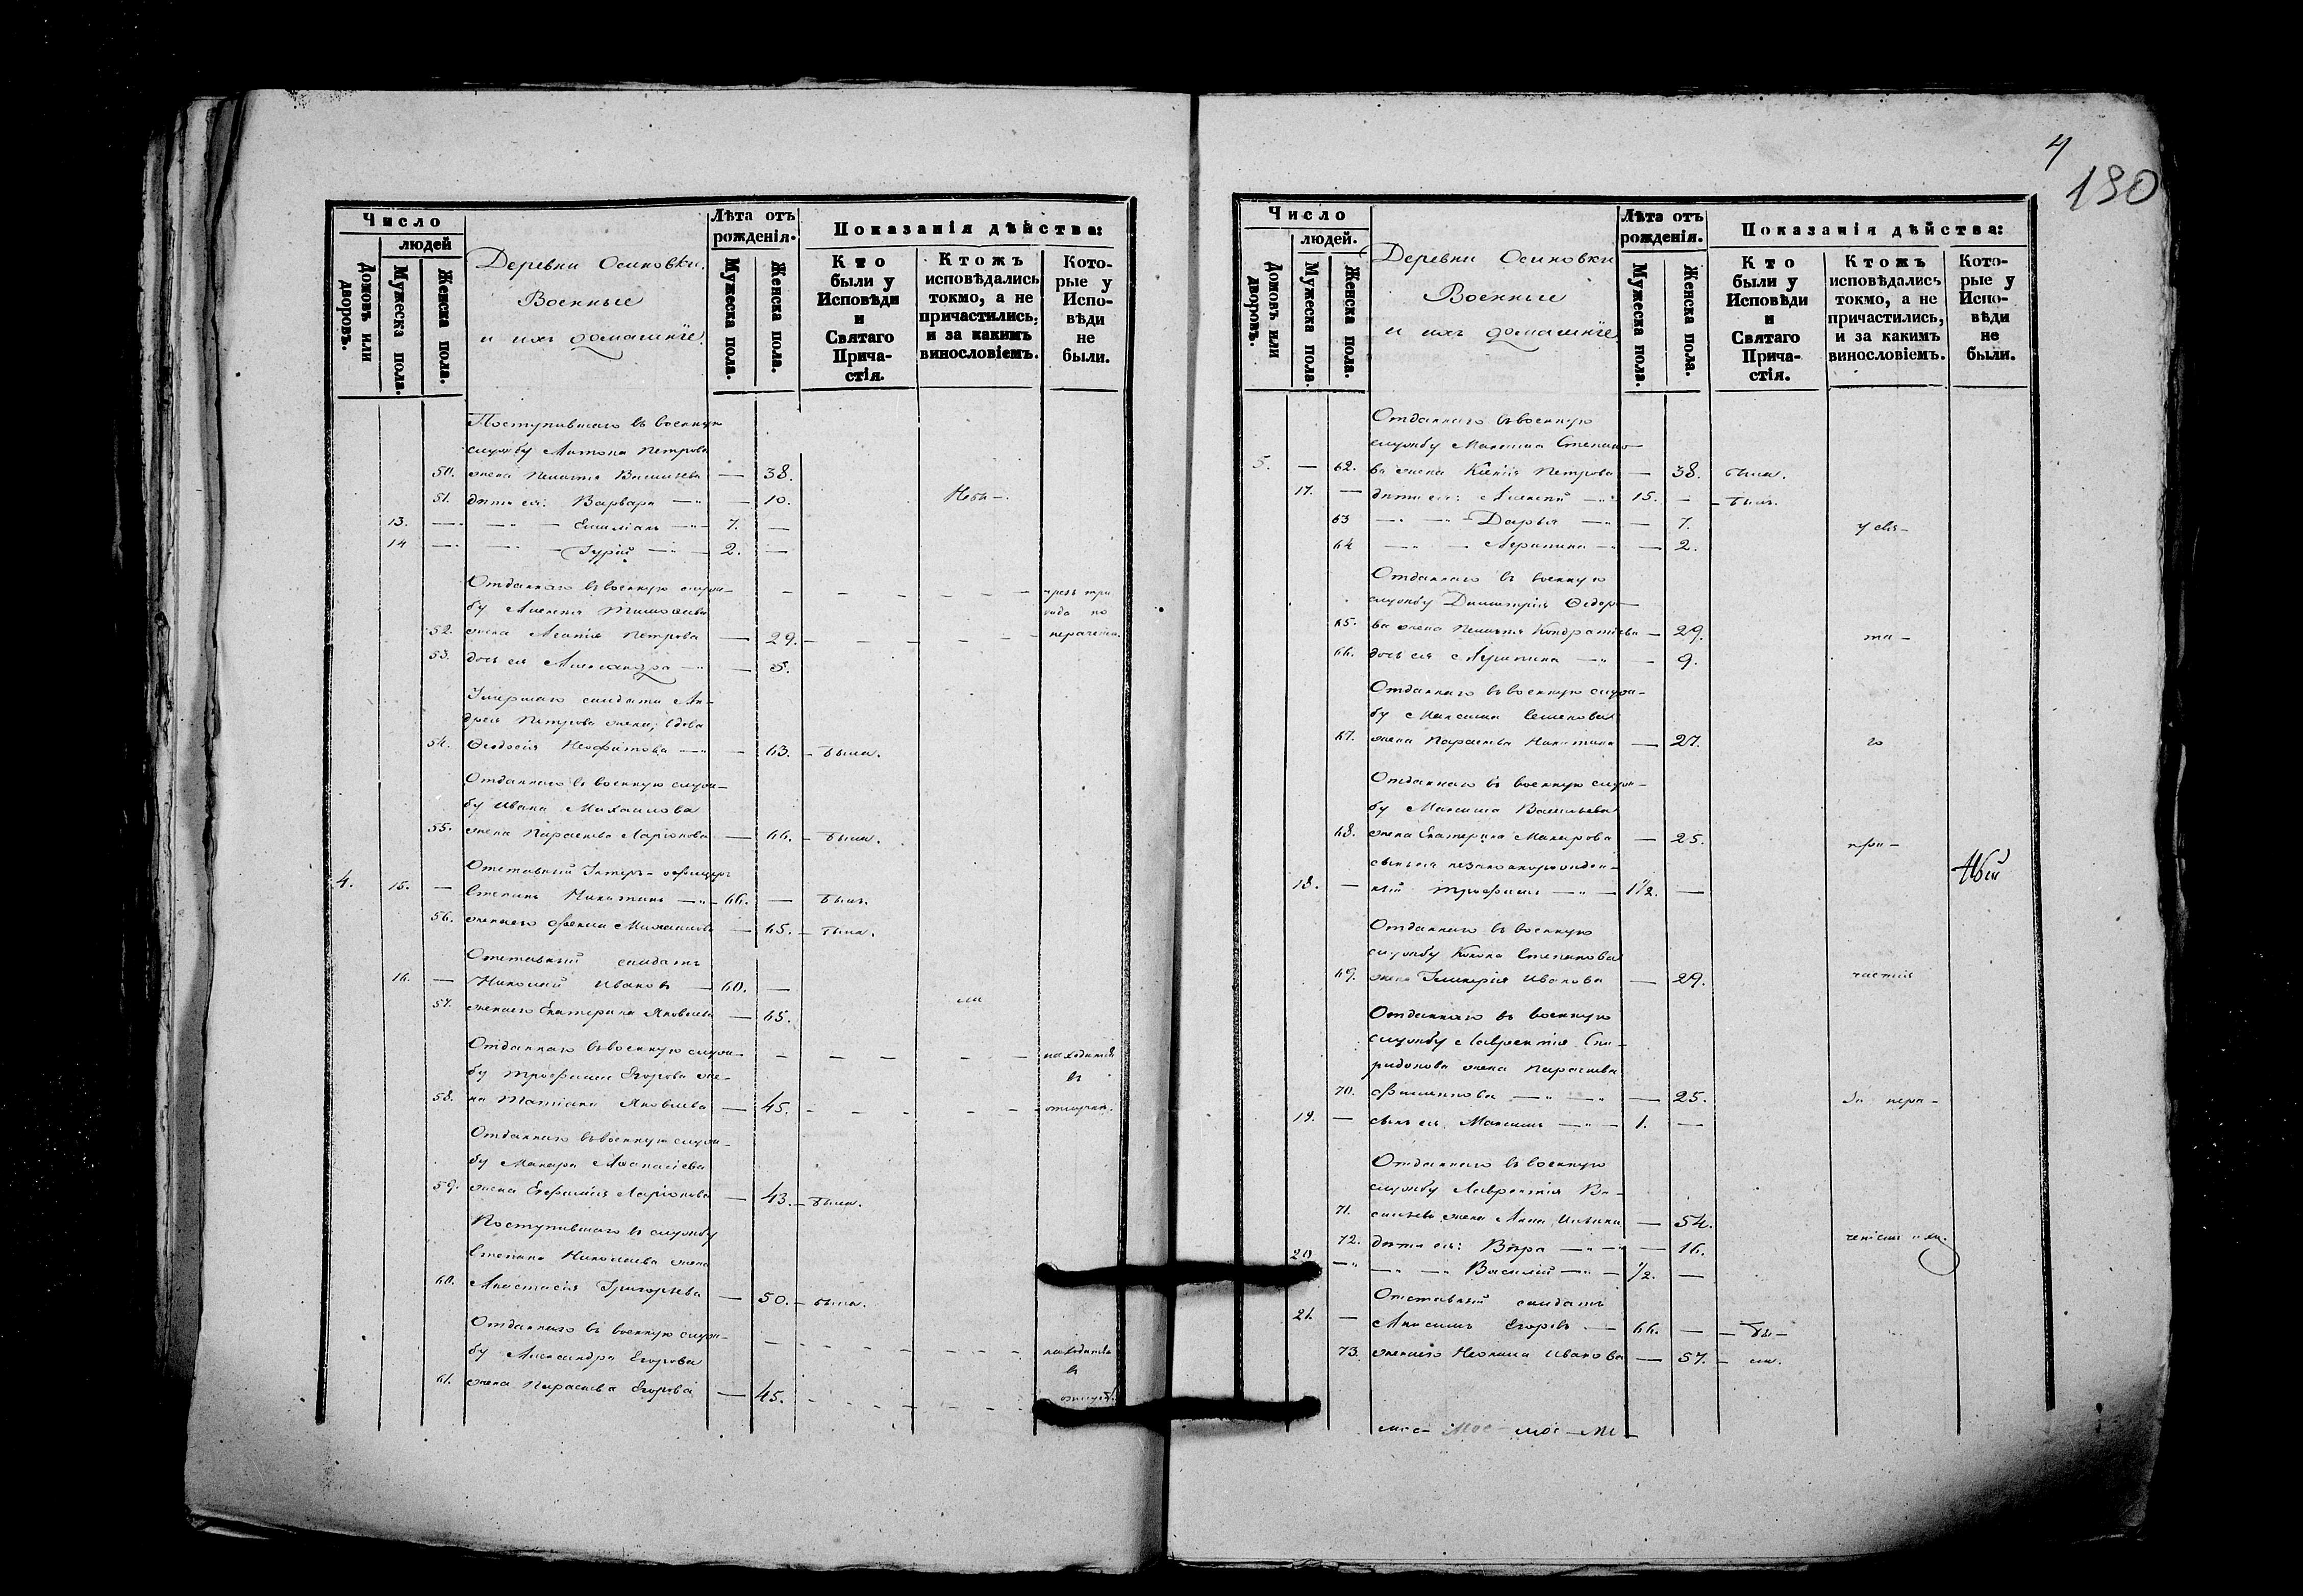 Число
людей
Домовъ или дворовъ.
Мужеска пола.
Женска пола.
Деревни Осиновки.
Военные
и ихъ домашніе.
Лѣта отъ рожденія.
Мужеска пола.
Женска пола.
Показанія дѣйства:
Кто были у Исповѣди и Святаго Прича-стія.
Ктожъ исповѣдались токмо, а не причастились, и за какимъ винословіемъ.
Кото-рые у Испо-вѣди не были.
Поступившаго въ военную
службу Антона Петрова
50. жена Пелагія Васильева — 38.
51. дѣти ея: Варвара —"— — 10. Небы-
13. — —"— Емиліанъ —"— 7. —
14 — —"— Гурій —"— 2. —
Отданнаго въ военную служ-
бу Алексѣя Тимофеева
52. жена Агапія Петрова — 29.
53. дочь ея Александра —"— — 5.
Умершаго солдата Ан-
дрея Петрова жена, вдова
54. Ѳеодосія Неофитова —"— — 63. — была.
Отданнаго въ военную служ-
бу Ивана Михаилова
55. жена Параскева Ларіонова — 66. — была.
Отставный Унтеръ-офицеръ
4. 15. — Степанъ Никитинъ —"— 66. — былъ.
56. жена его Михаилова — 65. — была.
Отставный солдатъ
16. — Николай Ивановъ — 60. —
57. жена его Екатерина Яковлева — 65. ли
Отданнаго въ военную служ-
бу Трофима Егорова же-
58. на Татіана Яковлева — 45. находится въ отлучкѣ.
Отданнаго въ военную служ-
бу Макара Аѳанасіева
59. жена Евфимія Ларіонова — 43. — была.
Поступившаго въ службу
Степана Николаева жена
60. Анастасія Григорьева — 50. — была.
Отданнаго въ военную служ-
бу Александра Егорова
61. жена Параскева Егорова — 45. находится въ
4
130
Число
людей.
Домовъ или дворовъ.
Мужеска пола.
Женска пола.
Деревни Осиновки
Военные
и ихъ домашніе
Лѣта отъ рожденія.
Мужеска пола.
Женска пола.
Показанія дѣйства:
Кто были у Исповѣди и Святаго Прича-стія.
Ктожъ исповѣдались токмо, а не причастились, и за какимъ винословіемъ.
Кото-рые у Испо-вѣди не были.
Отданнаго въ военную
службу Максима Степано-
5. — 62. ва жена Ксенія Петрова — 38. была.
17. — дѣти ея: Алексѣй —"— 15. — — былъ.
63 — —"— Дарья —"— — 7. у свя-
64 — —"— Агрипина —"— — 2.
Отданнаго въ военную
службу Димитрія Ѳедоро-
65. ва жена Пелагія Кондратіева — 29. та-
66. дочь ея Агрипина —"— — 9.
Отданнаго въ военную служ-
бу Максима Семенова
67. жена Параскева Никитина — 27. го
Отданнаго въ военную служ-
бу Максима Васильева
68. жена Екатерина Макарова — 25. при-
сынъ ея незаконорожден-
18. — ный Трофимъ —"— 1 1/2. —
Отданнаго въ военную
службу Конона Степанова
69. жена Гликерія Иванова — 29. частія
Отданнаго въ военную
службу Лаврентія Спи-
ридонова жена Параскева
70. Филиппова —"— — 25. За нера-
19. — сынъ ея Максимъ —"— 1. —
Отданнаго въ военную
службу Лаврентія Ва-
71. сильева жена Анна Ильина — 54.
72. дѣти ея: Вѣра —"— — 16. ченіемъ
20 —"— Василій —"— 1/2. —
Отставный солдатъ
21. — Анисимъ Егоровъ — 66. — — бы-
73. жена его Неонила Иванова — 57. — ли.